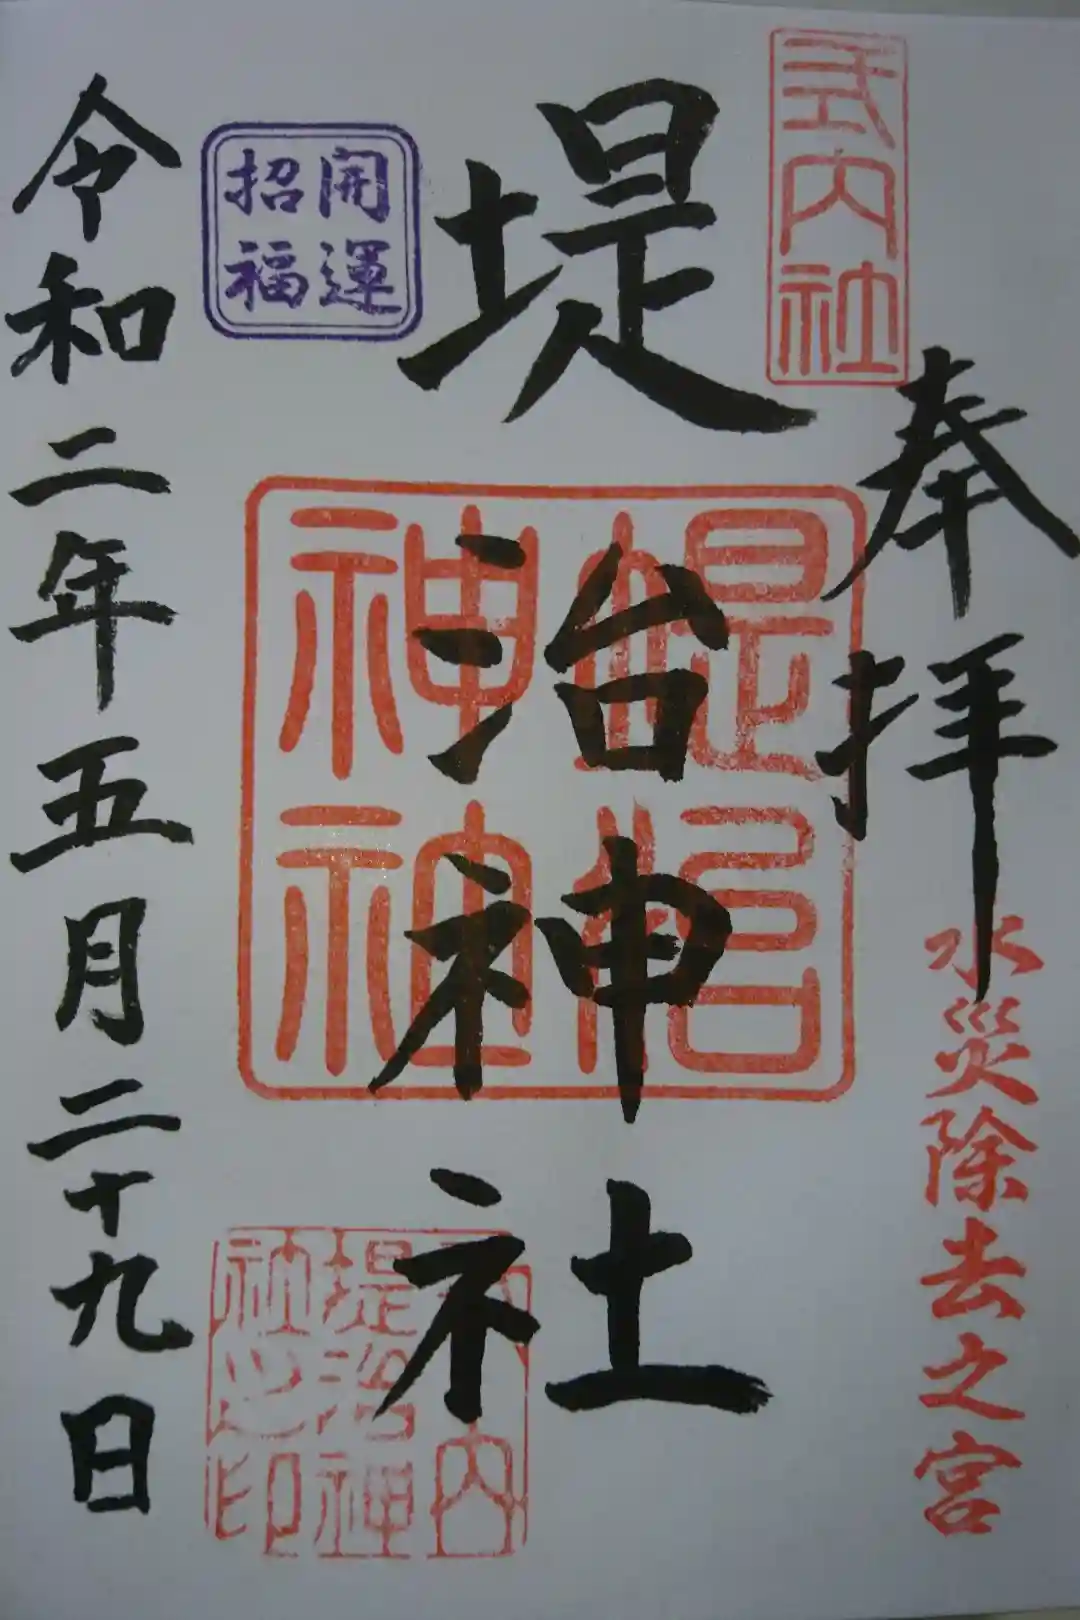 式内社
奉拝
水災除去之宮
堤治神社
堤治
神社
開運
招福
式内
堤治神
社之印
令和二年五月二十九日